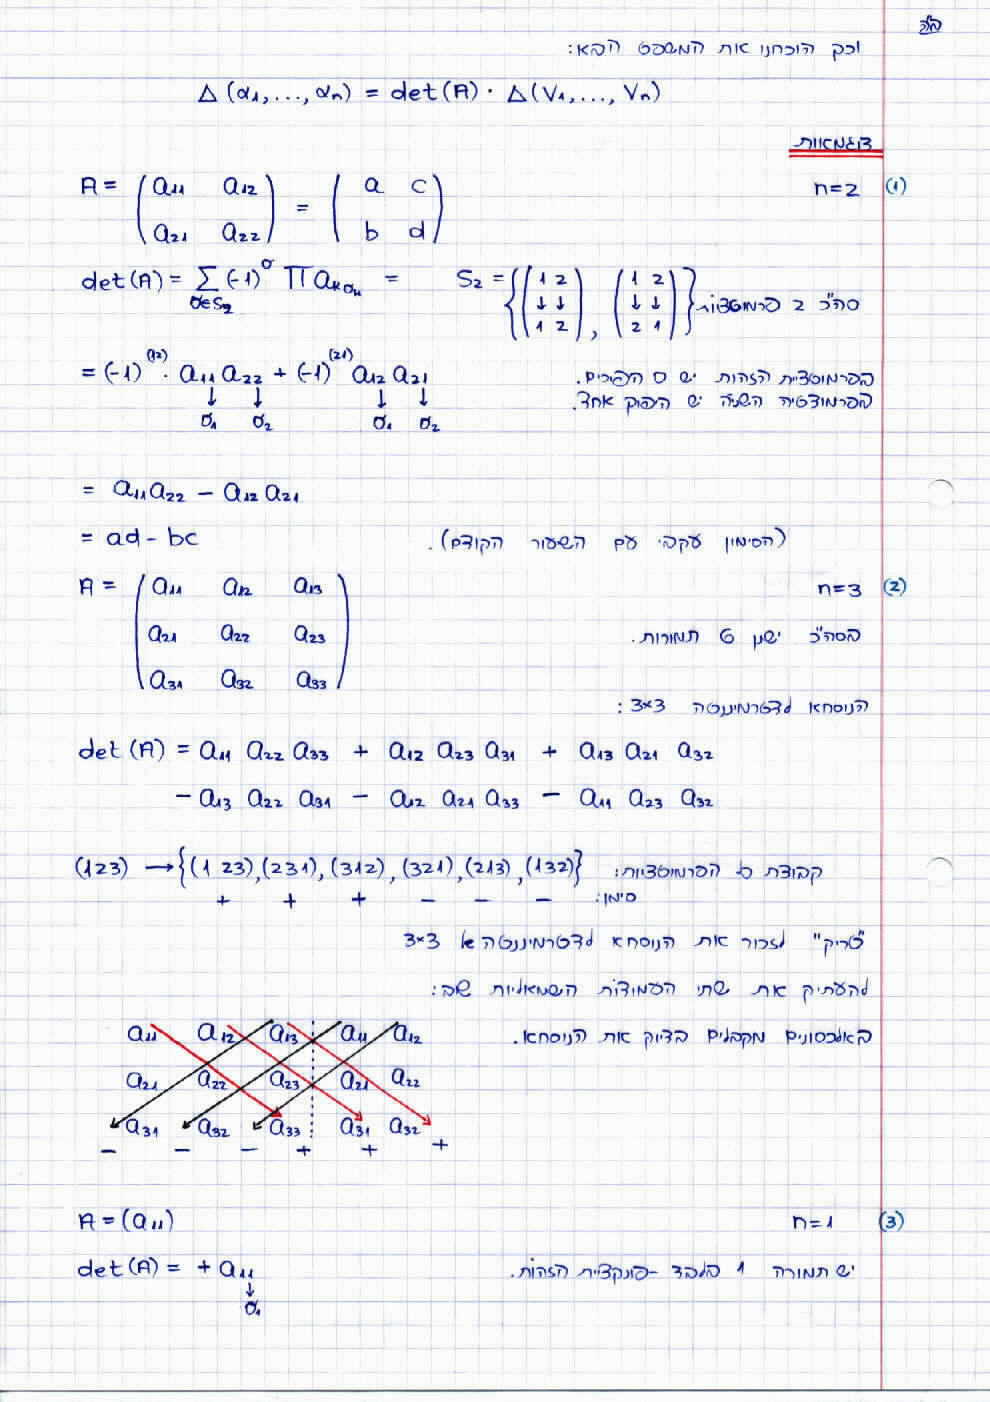 בס"ד
וכך הוכחנו את המשפט הבא:
Δ(α₁,...,αₙ) = det(A)·Δ(V₁,...,Vₙ)
דוגמאות
(1) n=2
A = (a₁₁ a₁₂ = (a c
a₂₁ a₂₂) b d)
det(A) = Σ (-1)^σ Π a_{kσ_k} = S₂ = {(1 2 , (1 2 )} סה"כ 2 פרמוטציות
σ∈S₂ ↓ ↓ ↓ ↓
1 2 2 1
= (-1)^(12) · a₁₁ a₂₂ + (-1)^(21) a₁₂ a₂₁ בפרמוטציית הזהות יש 0 היפוכים.
↓ ↓ ↓ ↓ בפרמוטציה השניה יש היפוך אחד.
σ₁ σ₂ σ₁ σ₂
= a₁₁a₂₂ − a₁₂a₂₁
= ad − bc (הסימון עקבי עם השעור הקודם).
(2) n=3
A = (a₁₁ a₁₂ a₁₃
a₂₁ a₂₂ a₂₃ בסה"כ ישנן 6 תמורות.
a₃₁ a₃₂ a₃₃)
הנוסחא לדטרמיננטה 3×3:
det(A) = a₁₁ a₂₂ a₃₃ + a₁₂ a₂₃ a₃₁ + a₁₃ a₂₁ a₃₂
− a₁₃ a₂₂ a₃₁ − a₁₂ a₂₁ a₃₃ − a₁₁ a₂₃ a₃₂
קבוצת כל הפרמוטציות: (123) → {(1 23),(231),(312),(321),(213),(132)}
סימן: + + + − − −
"טריק" לזכור את הנוסחא לדטרמיננטה של 3×3
להעתיק את שתי העמודות השמאליות שוב:
באלכסונים מקבלים בדיוק את הנוסחא.
a₁₁ a₁₂ a₁₃ a₁₁ a₁₂
a₂₁ a₂₂ a₂₃ a₂₁ a₂₂
a₃₁ a₃₂ a₃₃ a₃₁ a₃₂
− − − + + +
(3) n=1
A = (a₁₁)
det(A) = + a₁₁ יש תמורה 1 בלבד - פונקציית הזהות.
↓
σ₁